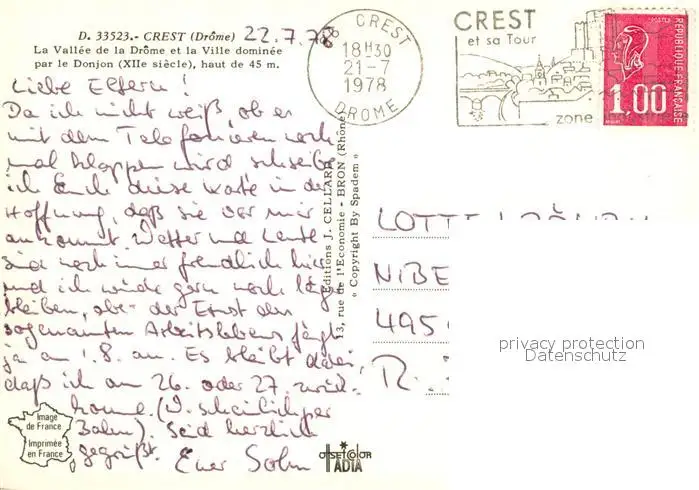 D. 33523.- CREST (Drôme)
La Vallée de la Drôme et la Ville dominée
par le Donjon (XIIe siècle), haut de 45 m.
22.7.78
CREST
18H30
21-7
1978
DROME
CREST
et sa Tour
zone
POSTES
RÉPUBLIQUE FRANÇAISE
1,00
Liebe Eltern!
Da ich nicht weiß, ob es
mit dem Telefonieren noch
mal klappen wird schreibe
ich Euch diese Karte in der
Hoffnung, daß sie vor mir
ankommt. Wetter und Leute
sind noch immer freundlich hier
und ich würde gern noch länger
bleiben, aber der Ernst des
sogenannten Arbeitslebens fängt
ja am 1.8. an. Es bleibt dabei,
daß ich am 26. oder 27. zurück-
komme. (W.scheinlich per
Bahn). Seid herzlich
gegrüßt. Euer Sohn
Editions J. CELLARD
13, rue de l'Economie - BRON (Rhône)
« Copyright By Spadem »
LOTTE
NIBE
495
R
privacy protection
Datenschutz
Image
de France
Imprimée
en France
OFFSETCOLOR
IADIA